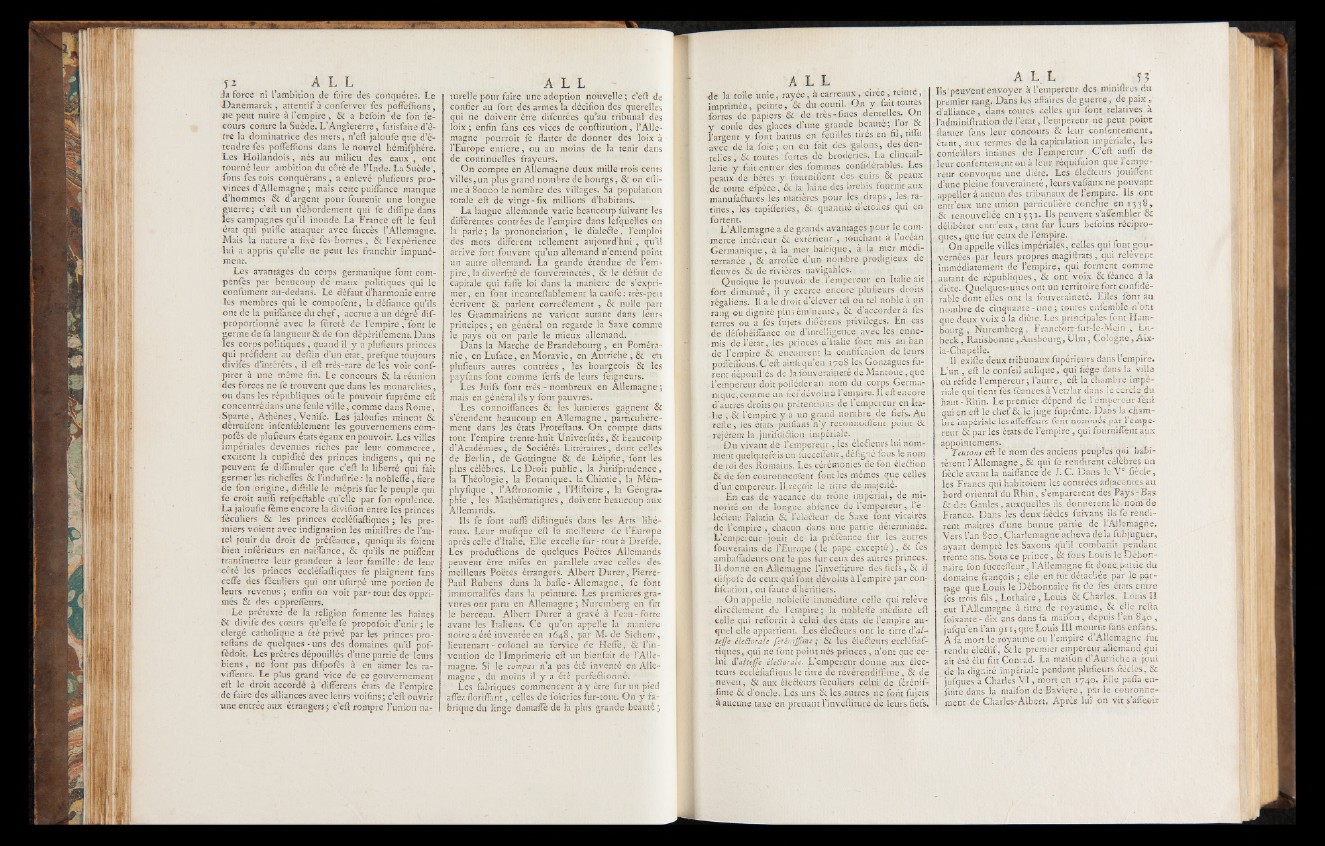 52 A L L A L L
la force ni l'ambition de faire des conquêtes. Le
Danemarck, attentif à conserver ses possessions,
ne peut nuire à l'empire, & a besoin de son se-
cours contre la Suède. L'Angleterre, satisfaite d'ê-
tre la dominatrice des mers, n'est jalouse que d'é-
tendre ses possessions dans le nouvel hémisphère.
Les Hollandois, nés au milieu des eaux, ont
tourné leur ambition du côté de l'Inde. La Suède,
sous ses rois conquérans, a enlevé plusieurs pro-
vinces d'Allemagne; mais cette puissance manque
d'hommes & d'argent pour soutenir une longue
guerre; c'est un débordement qui se dissipe dans
les campagnes qu'il inonde. La France est le seul
état qui puisse attaquer avec succès l'Allemagne.
Mais la nature a fixé ses bornes, & l'expérience
lui a appris qu'elle ne peut les franchir impuné-
ment.
Les avantages du corps germanique sont com-
pensés par beaucoup de maux politiques qui le
consument au-dedans. Le défaut d'harmonie entre
les membres qui le composent, la défiance qu'ils
ont de la puissance du chef, accrue à un dégré dis-
proportionné avec la sûreté de l'empire, sont le
germe de sa langueur & de son dépérissement. Dans
les corps politiques, quand il y a plusieurs princes
qui président au destin d'un état, presque toujours
divisés d'intérêts, il est très-rare de les voir cons-
pirer à une même fin. Le concours & la réunion
des forces ne se trouvent que dans les monarchies,
ou dans les républiques où le pouvoir suprême est
concentré dans une seule ville, comme dans Rome,
Sparte, Athènes, Venise. Les jalousies minent &
détruisent insensiblement les gouvernemens com-
posés de plusieurs états égaux en pouvoir. Les villes
impériales devenues riches par leur commerce,
excitent la cupidité des princes indigens, qui ne
peuvent se dissimuler que c'est la liberté qui fait
germer les richesses & l'industrie: la noblesse, fière
de son origine, distille le mépris sur le peuple qui
se croit aussi respectable qu'elle par son opulence.
La jalousie sème encore la division entre les princes
séculiers & les princes ecclésiastiques; les pre-
miers voient avec indignation les ministres de l'au-
tel jouir du droit de préséance, quoiqu'ils soient
bien inférieurs en naissance, & qu'ils ne puissent
transmettre leur grandeur à leur famille: de leur
côté les princes ecclésiastiques se plaignent sans
cesse des séculiers qui ont usurpé une portion de
leurs revenus; enfin on voit par-tout des oppri-
més & des oppresseurs.
Le prétexte de la religion fomente les haines
& divise des cœurs qu'elle se proposoit d'unir; le
clergé catholique a été privé par les princes pro-
testans de quelques-uns des domaines qu'il pos-
sédoit. Les prêtres dépouillés d'une partie de leurs
biens, ne sont pas disposés à en aimer les ra-
visseurs. Le plus grand vice de ce gouvernement
est le droit accordé à différens états de l'empire
de faire des alliances avec leurs voisins; c'est ouvrir
une entrée aux étrangers; c'est rompre l'union na-
turelle pour faire une adoption nouvelle; c'est de
confier au sort des armes la décision des querelles
qui ne doivent être discutées qu'au tribunal des
loix; enfin sans ces vices de constitution, l'Alle-
magne pourroit se flatter de donner des loix à
l'Europe entière, ou au moins de la tenir dans
de continuelles frayeurs.
On compte en Allemagne deux mille trois cents
villes, un plus grand nombre de bourgs, & on esti-
me à 80000 le nombre des villages. Sa population
totale est de vingt-six millions d'habitans.
La langue allemande varie beaucoup suivant les
différentes contrées de l'empire dans lesquelles on
la parle; la prononciation, le dialecte, l'emploi
des mots different tellement aujourd'hui, qu'il
arrive fort souvent qu'un allemand n'entend point
un autre allemand. La grande étendue de l'em-
pire, la diversité de souverainetés, & le défaut de
capitale qui fasse loi dans la maniere de s'expri-
mer, en sont incontestablement la cause: très-peu
écrivent & parlent correctement, & nulle part
les Grammairiens ne varient autant dans leurs
principes; en général on regarde la Saxe comme
le pays où on parle le mieux allemand.
Dans la Marche de Brandebourg, en Poméra-
nie, en Lusace, en Moravie, en Autriche, & en
plusieurs autres contrées, les bourgeois & les
paysans sont comme serfs de leurs seigneurs.
Les Juifs sont très-nombreux en Allemagne;
mais en général ils y sont pauvres.
Les connoissances & les lumieres gagnent &
s'étendent beaucoup en Allemagne, particulière-
ment dans les états Protestans. On compte dans
tout l'empire trente-huit Universités, & beaucoup
d'Académies, de Sociétés Littéraires, dont celles
de Berlin, de Gottingue & de Léipsic, sont les
plus célèbres. Le Droit public, la Jurisprudence,
la Théologie, la Botanique, la Chimie, la Méta-
physique, l'Astronomie, l'Histoire, la Géogra-
phie, les Mathématiques, doivent beaucoup aux
Allemands.
Ils se sont aussi distingués dans les Arts libé-
raux. Leur musique est la meilleure de l'Europe
après celle d'Italie. Elle excelle sur-tout à Dresde.
Les productions de quelques Poëtes Allemands
peuvent être mises en parallele avec celles des
meilleurs Poëtes étrangers. Albert Durer, Pierre-
Paul Rubens dans la basse-Allemagne, se sont
immortalisés dans la peinture. Les premieres gra-
vures ont paru en Allemagne; Nuremberg en fut
le berceau. Albert Durer a gravé à l'eau-forte
avant les Italiens. Ce qu'on appelle la maniere
noire a été inventée en 1648, par M. de Sichem,
lieutenant-colonel au service de Hesse, & l'in-
vention de l'Imprimerie est un bienfait de l'Alle-
magne. Si le compas n'a pas été inventé en Alle-
magne, du moins il y a été perfectionné.
Les fabriques commencent à y être sur un pied
assez florissant, celles de soieries sur-tout. On y fa-
brique du linge damassé de la plus grande beauté;
A L L A L L 53
de la toile unie, rayée, à carreaux, cirée, teinte,
imprimée, peinte, & du coutil. On y fait toutes
sortes de papiers & de très-fines dentelles. On
y coule des glaces d'une grande beauté; l'or &
l'argent y sont battus en feuilles tirés en fil, tissu
avec de la soie; on en fait des galons, des den-
telles, & toutes sortes de broderies. La clincail-
lerie y fait entrer des sommes considérables. Les
peaux de bêtes y fournissent des cuirs & peaux
de toute espèce, & la laine des brebis fournit aux
manufactures les matières pour les draps, les ra-
tines, les tapisseries, & quantité d'étoffes qui en
sortent.
L'Allemagne a de grands avantages pour le com-
merce intérieur & extérieur, touchant à l'océan
Germanique, à la mer baltique, à la mer médi-
terranée, & arrosée d'un nombre prodigieux de
fleuves & de rivières navigables.
Quoique le pouvoir de l'empereur en Italie ait
fort diminué, il y exerce encore plusieurs droits
régaliens. Il a le droit d'élever tel ou tel noble à un
rang ou dignité plus éminente, & d'accorder à ses
terres ou à ses sujets différens privileges. En cas
de désobéissance ou d'intelligence avec les enne-
mis de l'état, les princes d'Italie sont mis au ban
de l'empire & encourent la confiscation de leurs
possessions. C'est ainsi qu'en 1708 les Gonzagues fu-
rent dépouillés de la souveraineté de Mantoue, que
l'empereur doit posséder au nom du corps Germa-
nique, comme un fief dévolu à l'empire. Il est encore
d'autres droits ou prétentions de l'empereur en Ita-
lie, & l'empire y a un grand nombre de fiefs. Au
reste, les états puissans n'y reconnoissent point &
rejétent la jurisdiction impériale.
Du vivant de l'empereur, les électeurs lui nom-
ment quelquefois un successeur, désigné sous le nom
de roi des Romains. Les cérémonies de son élection
& de son couronnement sont les mêmes que celles
d'un empereur. Il reçoit le titre de majesté.
En cas de vacance du trône impérial, de mi-
norité ou de longue absence de l'empereur, l'é-
lecteur Palatin & l'électeur de Saxe sont vicaires
de l'empire, chacun dans une partie déterminée.
L'empereur jouit de la préséance sur les autres
souverains de l'Europe (le pape excepté), & ses
ambassadeurs ont le pas sur ceux des autres princes.
Il donne en Allemagne l'investiture des fiefs, & il
dispose de ceux qui sont dévolus à l'empire par con-
fiscation, ou faute d'héritiers.
On appelle noblesse immédiate celle qui relève
directement de l'empire; la noblesse médiate est
celle qui ressortit à celui des états de l'empire au-
quel elle appartient. Les électeurs ont le titre d'al-
tesse électorale sérénissime; & les électeurs ecclésias-
tiques, qui ne sont point nés princes, n'ont que ce-
lui d'altesse électorale. L'empereur donne aux élec-
teurs ecclésiastiques le titre de révérendissime, & de
neveu, & aux électeurs séculiers celui de sérénis-
sime & d'oncle. Les uns & les autres ne sont sujets
à aucune taxe en prenant l'investiture de leurs fiefs.
Ils peuvent envoyer à l'empereur des ministres du
premier rang. Dans les affaires de guerre, de paix,
d'alliance, dans toutes celles qui sont relatives à
l'administration de l'état, l'empereur ne peut point
statuer sans leur concours & leur consentement,
étant, aux termes de la capitulation impériale, les
conseillers intimes de l'empereur. C'est aussi de
leur consentement ou à leur réquisition que l'empe-
reur convoque une diète. Les électeurs jouissent
d'une pleine souveraineté, leurs vassaux ne pouvant
appeller à aucun des tribunaux de l'empire. Ils ont
entr'eux une union particulière conclue en 1338,
& renouvellée en 1521. Ils peuvent s'assembler &
délibérer entr'eux, tant sur leurs besoins récipro-
ques, que sur ceux de l'empire.
On appelle villes impériales, celles qui sont gou-
vernées par leurs propres magistrats, qui relèvent
immédiatement de l'empire, qui forment comme
autant de républiques, & ont voix & séance à la
diète. Quelques-unes ont un territoire fort considé-
rable dont elles ont la souveraineté. Elles sont au
nombre de cinquante-une; toutes ensemble n'ont
que deux voix à la diète. Les principales sont Ham-
bourg, Nuremberg, Francfort-sur-le-Mein, Lu-
beck, Ratisbonne, Ausbourg, Ulm, Cologne, Aix-
la-Chapelle.
Il existe deux tribunaux supérieurs dans l'empire.
L'un, est le conseil aulique, qui siège dans la ville
où réside l'empereur; l'autre, est la chambre impé-
riale qui tient ses séances à Vetzlar dans le cercle du
haut-Rhin. Le premier dépend de l'empereur seul
qui en est le chef & le juge suprême. Dans la cham-
bre impériale les assesseurs sont nommés par l'empe-
reur & par les états de l'empire, qui fournissent aux
appointemens.
Teutons est le nom des anciens peuples qui habi-
tèrent l'Allemagne, & qui se rendirent célèbres un
siècle avant la naissance de J. C. Dans le Ve siècle,
les Francs qui habitoient les contrées adjacentes au
bord oriental du Rhin, s'emparèrent des Pays-Bas
& des Gaules, auxquelles ils donnèrent le nom de
France. Dans les deux siècles suivans ils se rendi-
rent maîtres d'une bonne partie de l'Allemagne.
Vers l'an 800, Charlemagne acheva de la subjuguer,
ayant dompté les Saxons qu'il combattit pendant
trente ans. Sous ce prince, & sous Louis le Débon-
naire son successeur, l'Allemagne fit donc partie du
domaine françois; elle en fut détachée par le par-
tage que Louis le Débonnaire fit de ses états entre
ses trois fils, Lothaire, Louis & Charles. Louis II
eut l'Allemagne à titre de royaume, & elle resta
soixante-dix ans dans sa maison, depuis l'an 840,
jusqu'en l'an 911, que Louis III mourut sans enfans.
A sa mort le royaume ou l'empire d'Allemagne fut
rendu électif, & le premier empereur allemand qui
ait été élu fut Conrad. La maison d'Autriche a joui
de la dignité impériale pendant plusieurs siècles, &
jusques à Charles VI, mort en 1740. Elle passa en-
suite dans la maison de Bavière, par le couronne-
ment de Charles-Albert. Après lui on vit s'asseoir